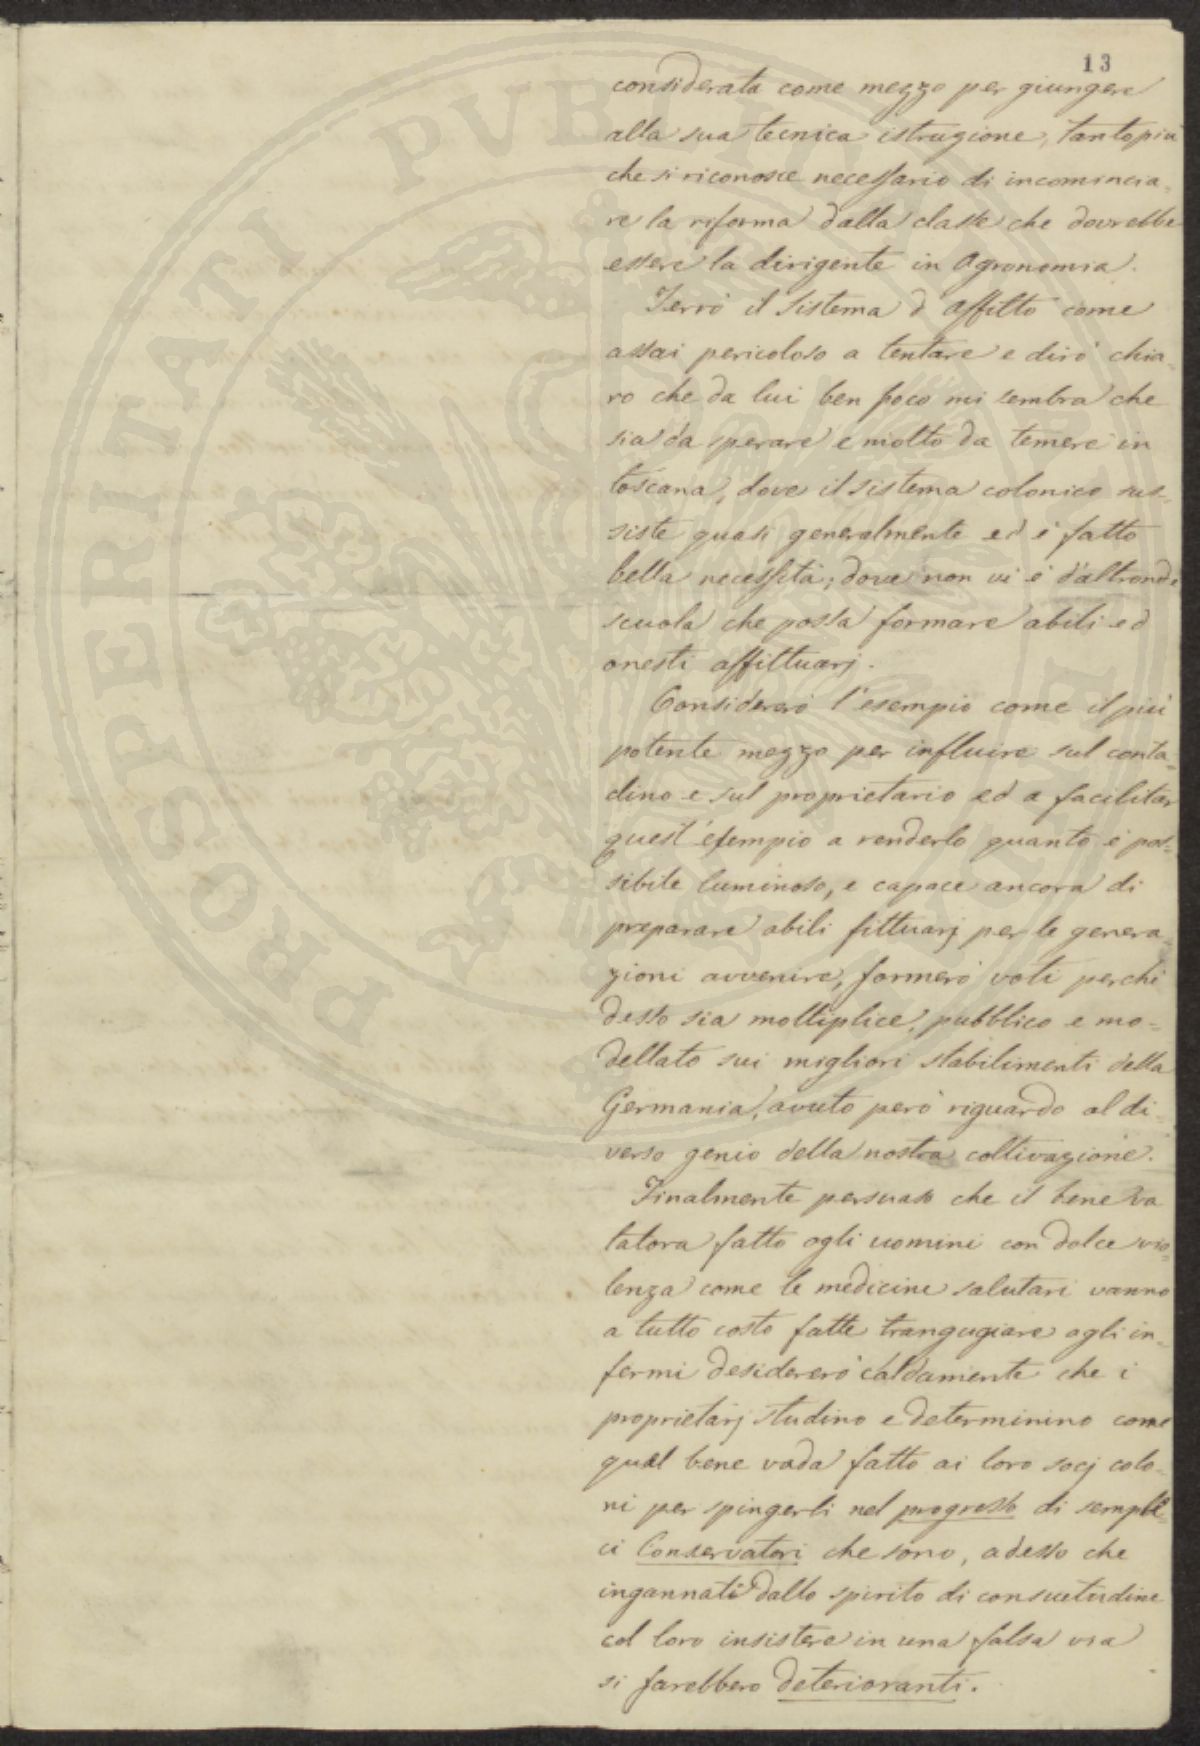 13
considerata come mezzo per giungere
alla sua tecnica istruzione, tantopiù
che si riconosce necessario di incomincia=
re la riforma dalla classe che dovrebbe
essere la dirigente in Agronomia.
Terrò il Sistema d'affitto come
assai pericoloso a tentare e dirò chia=
ro che da lui ben poco mi sembra che
sia da sperare e molto da temere in
toscana, dove il sistema colonico sus=
siste quasi generalmente ed è fatto
bella necessità; dove non vi è d'altronde
scuola che possa formare abili ed
onesti affittuarj.
Considererò l'esempio come il più
potente mezzo per influire sul conta=
dino e sul proprietario ed a facilitar
quest'esempio a renderlo quanto è pos=
sibile luminoso, e capace ancora di
preparare abili fittuarj per le genera=
zioni avvenire, formerò voti perchè
desso sia moltiplice, pubblico e mo=
dellato sui migliori stabilimenti della
Germania, avuto però riguardo al di=
verso genio della nostra coltivazione.
Finalmente persuaso che il bene va
talora fatto agli uomini con dolce vio=
lenza come le medicine salutari vanno
a tutto costo fatte trangugiare agli in=
fermi desidererò caldamente che i
proprietarj studino e determinino come
qual bene vada fatto ai loro socj colo=
ni per spingerli nel progresso di sempli=
ci Conservatori che sono, adesso che
ingannati dallo spirito di consuetudine
col loro insistere in una falsa via
si farebbero deterioranti.
PROSPERITATI PUBLICAE